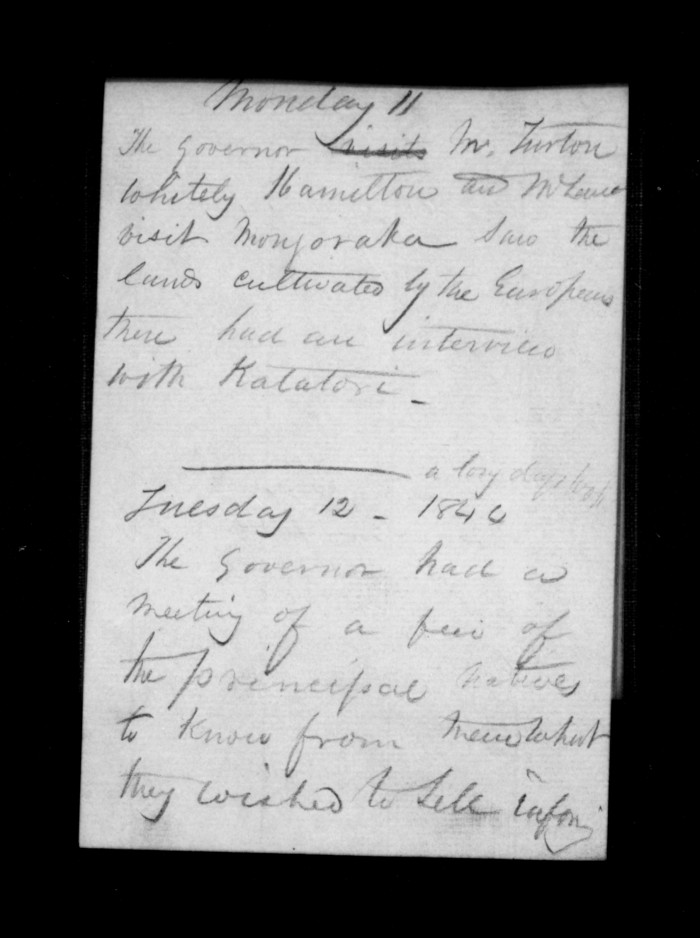 Monday 11
The Governor visits Mr. Turton
Whitely Hamilton and McLean
visit Mongoraka saw the
lands cultivated by the Europeans
there had an interview
with Katatori -
a
Tuesday 12 - 1844
The Governor had a
meeting of a few of
the principal natives
to know from them what
they wished to sell